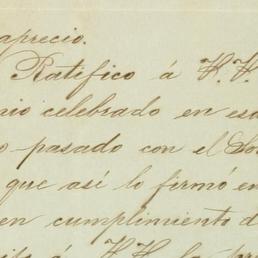 aprecio.
Ratifico á V. V.
nio celebrado en es
o pasado con el So
que así lo firmó en
en cumplimiento d
á V. V. la pr